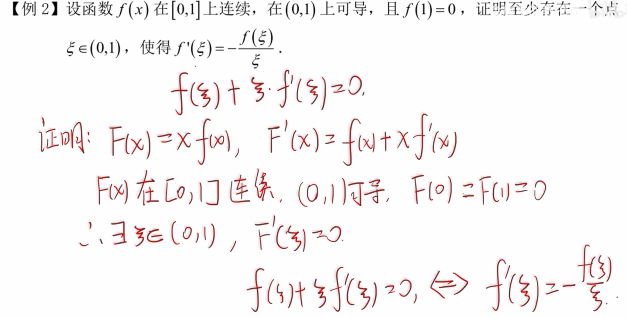 【例 2】设函数 f(x) 在[0,1]上连续，在(0,1)上可导，且 f(1)=0，证明至少存在一个点
ξ∈(0,1)，使得 f'(ξ)=-f(ξ)/ξ．
f(ξ)+ξ·f'(ξ)=0,
证明: F(x)=xf(x), F'(x)=f(x)+xf'(x)
F(x)在[0,1]连续, (0,1)可导, F(0)=F(1)=0
∴∃ξ∈(0,1), F'(ξ)=0.
f(ξ)+ξf'(ξ)=0, ⇔ f'(ξ)=-f(ξ)/ξ.